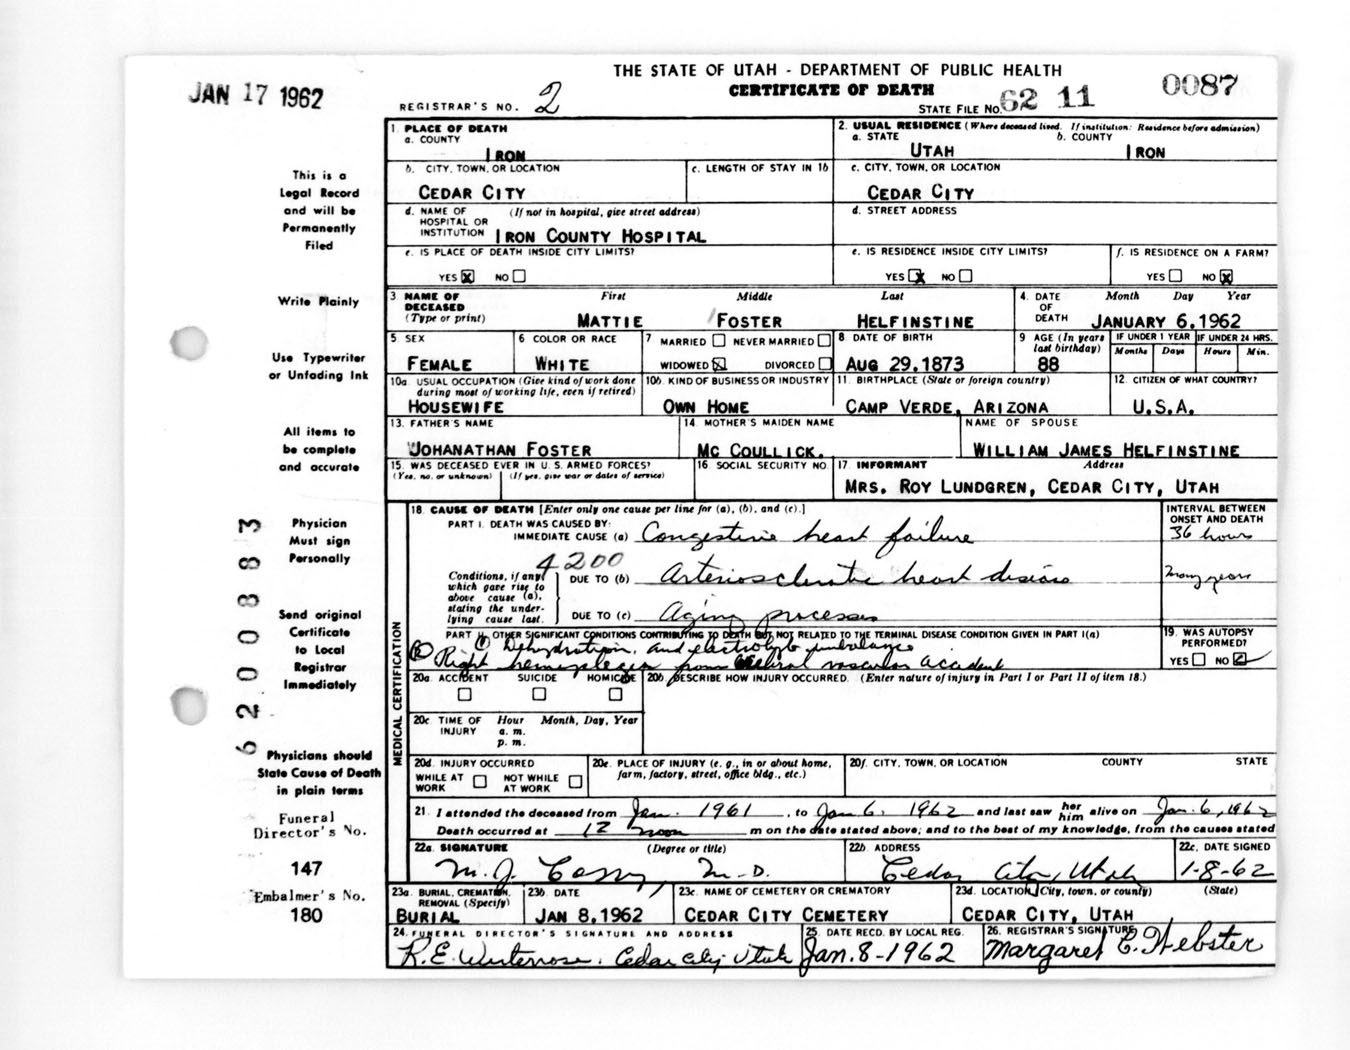 THE STATE OF UTAH - DEPARTMENT OF PUBLIC HEALTH
CERTIFICATE OF DEATH
JAN 17 1962
REGISTRAR'S NO. 2
STATE FILE NO. 62 11 0087
This is a
Legal Record
and will be
Permanently
Filed
Write Plainly
Use Typewriter
or Unfading Ink
All items to
be complete
and accurate
Physician
Must sign
Personally
Send original
Certificate
to Local
Registrar
Immediately
Physicians should
State Cause of Death
in plain terms
Funeral
Director's No.
147
Embalmer's No.
180
620 0 8 8 3
1. PLACE OF DEATH
a. COUNTY
IRON
2. USUAL RESIDENCE (Where deceased lived. If institution: Residence before admission)
a. STATE b. COUNTY
UTAH IRON
b. CITY, TOWN, OR LOCATION
CEDAR CITY
c. LENGTH OF STAY IN 1b
c. CITY, TOWN, OR LOCATION
CEDAR CITY
d. NAME OF (If not in hospital, give street address)
HOSPITAL OR
INSTITUTION IRON COUNTY HOSPITAL
d. STREET ADDRESS
e. IS PLACE OF DEATH INSIDE CITY LIMITS?
YES X NO
e. IS RESIDENCE INSIDE CITY LIMITS?
YES X NO
f. IS RESIDENCE ON A FARM?
YES NO X
3 NAME OF First Middle Last
DECEASED
(Type or print) MATTIE FOSTER HELFINSTINE
4. DATE Month Day Year
OF
DEATH JANUARY 6, 1962
5. SEX
FEMALE
6 COLOR OR RACE
WHITE
7 MARRIED NEVER MARRIED
WIDOWED X DIVORCED
8 DATE OF BIRTH
AUG 29, 1873
9 AGE (In years
last birthday)
88
IF UNDER 1 YEAR IF UNDER 24 HRS.
Months Days Hours Min.
10a. USUAL OCCUPATION (Give kind of work done
during most of working life, even if retired)
HOUSEWIFE
10b. KIND OF BUSINESS OR INDUSTRY
OWN HOME
11. BIRTHPLACE (State or foreign country)
CAMP VERDE, ARIZONA
12. CITIZEN OF WHAT COUNTRY?
U.S.A.
13. FATHER'S NAME
JOHANATHAN FOSTER
14. MOTHER'S MAIDEN NAME
MC COULLICK.
NAME OF SPOUSE
WILLIAM JAMES HELFINSTINE
15. WAS DECEASED EVER IN U. S. ARMED FORCES?
(Yes, no, or unknown) (If yes, give war or dates of service)
16. SOCIAL SECURITY NO.
17. INFORMANT Address
MRS. ROY LUNDGREN, CEDAR CITY, UTAH
MEDICAL CERTIFICATION
18. CAUSE OF DEATH [Enter only one cause per line for (a), (b), and (c).]
PART I. DEATH WAS CAUSED BY:
IMMEDIATE CAUSE (a) Congestive heart failure
INTERVAL BETWEEN
ONSET AND DEATH
36 hours
4200
Conditions, if any
which gave rise to
above cause (a),
stating the under-
lying cause last.
DUE TO (b) Arteriosclerotic heart disease
many years
DUE TO (c) Aging processes
PART II. OTHER SIGNIFICANT CONDITIONS CONTRIBUTING TO DEATH BUT NOT RELATED TO THE TERMINAL DISEASE CONDITION GIVEN IN PART I(a)
① Dehydration, and electrolyte imbalance
② Right hemiplegia from cerebral vascular accident
19. WAS AUTOPSY
PERFORMED?
YES NO
20a. ACCIDENT SUICIDE HOMICIDE
20b. DESCRIBE HOW INJURY OCCURRED. (Enter nature of injury in Part I or Part II of item 18.)
20c. TIME OF Hour Month, Day, Year
INJURY a. m.
p. m.
20d. INJURY OCCURRED
WHILE AT NOT WHILE
WORK AT WORK
20e. PLACE OF INJURY (e. g., in or about home,
farm, factory, street, office bldg., etc.)
20f. CITY, TOWN, OR LOCATION COUNTY STATE
21. I attended the deceased from Jan. 1961, to Jan 6. 1962 and last saw her him alive on Jan. 6, 1962
Death occurred at 12 noon m on the date stated above; and to the best of my knowledge, from the causes stated
22a. SIGNATURE (Degree or title)
M. J. M.D.
22b ADDRESS
Cedar City, Utah
22c. DATE SIGNED
1-8-62
23a. BURIAL, CREMATION,
REMOVAL (Specify)
BURIAL
23b. DATE
JAN 8, 1962
23c. NAME OF CEMETERY OR CREMATORY
CEDAR CITY CEMETERY
23d. LOCATION (City, town, or county) (State)
CEDAR CITY, UTAH
24. FUNERAL DIRECTOR'S SIGNATURE AND ADDRESS
R. E. Cedar City Utah
25. DATE RECD. BY LOCAL REG.
Jan. 8-1962
26. REGISTRAR'S SIGNATURE
Margaret C. Webster